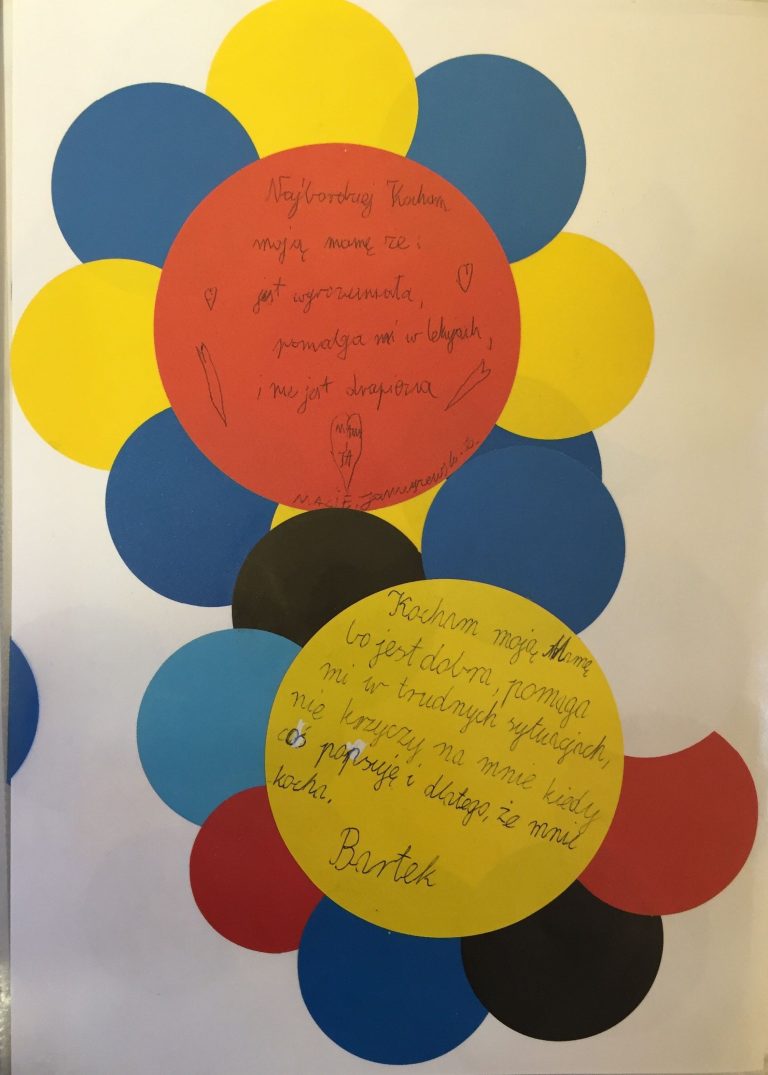 Najbardziej Kocham
moją mamę że:
jest wyrozumiała,
pomaga mi w lekcjach,
i nie jest drapieżna
MAMA
Kocham moją Mamę
bo jest dobra, pomaga
mi w trudnych sytuacjach,
nie krzyczy na mnie kiedy
coś popsuję i dlatego, że mnie
kocha.
Bartek